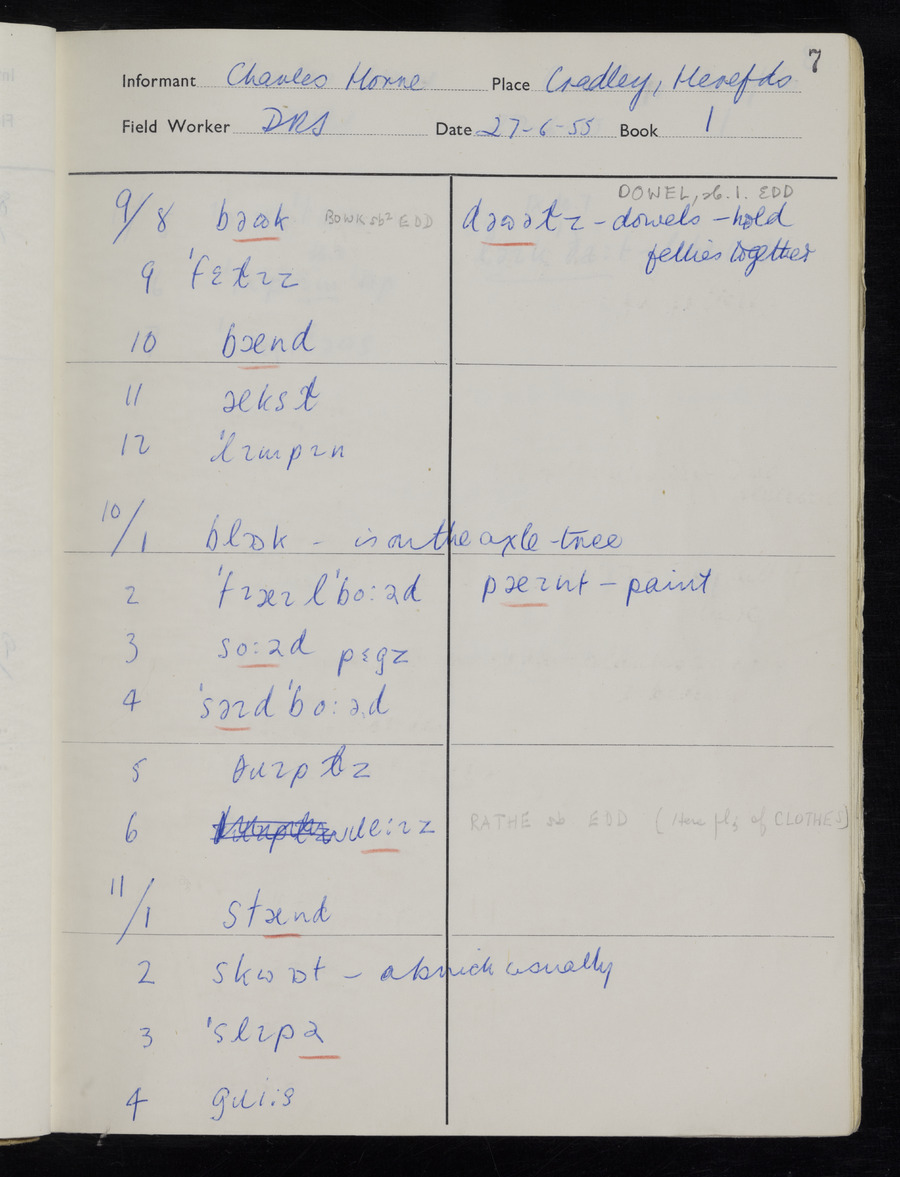 7
Informant Charles Horne Place Cradley, Herefds
Field Worker DRS Date 27-6-55 Book 1
DOWEL, sb. 1. EDD
9/8 bəʊk BOWK sb² EDD dəʊəɫz – dowels – hold
fellies together
9 ˈfɛɫɪz
10 bænd
11 ækst
12 ˈlɪmpɪn
10/1 blɒk – is on the axle-tree
2 ˈtɹæɪlˈbo:əd pæɪnt – paint
3 so:əd pɛgz
4 ˈsəɪdˈbo:əd
5
6 RATHE sb EDD (Here pl. of CLOTHES)
11/1 stænd
2 skwɒt – a brick usually
3 ˈslɪpə
4